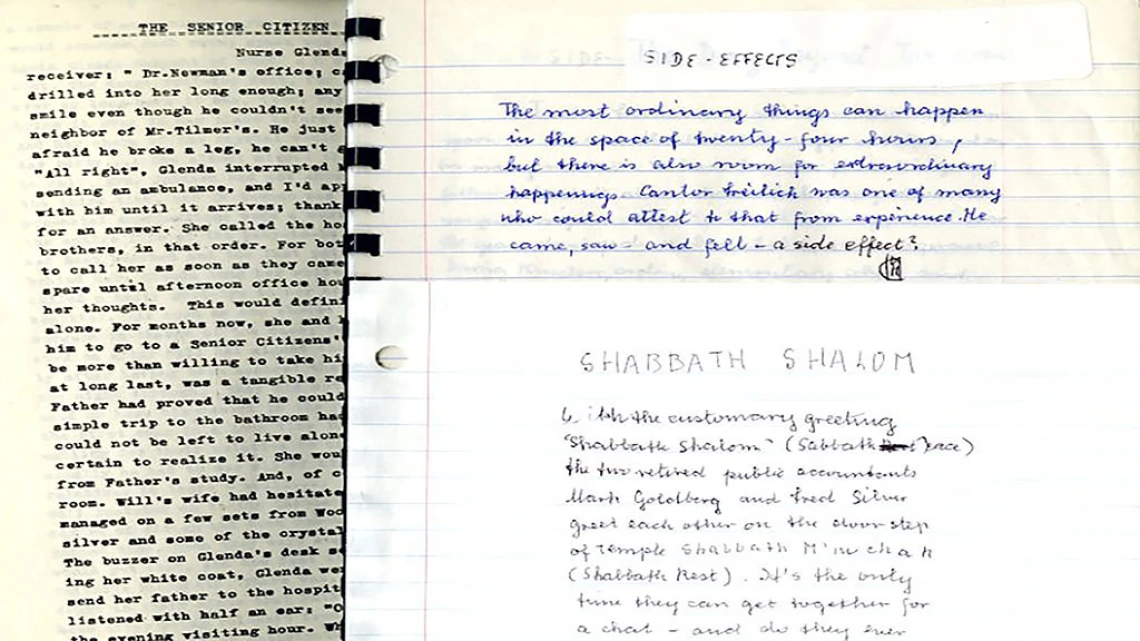 THE SENIOR CITIZEN
Nurse Glenda
receiver: " Dr.Newman's office; c
drilled into her long enough; any
smile even though he couldn't see
neighbor of Mr.Tilmer's. He just
afraid he broke a leg, he can't
"All right", Glenda interrupted
sending an ambulance, and I'd ap
with him until it arrives; thank
for an answer. She called the ho
brothers, in that order. For bot
to call her as soon as they came
spare until afternoon office hou
her thoughts. This would defini
alone. For months now, she and
him to go to a Senior Citizens'
be more than willing to take hi
at long last, was a tangible re
Father had proved that he could
simple trip to the bathroom had
could not be left to live alone
certain to realize it. She wou
from Father's study. And, of c
room. Will's wife had hesitate
managed on a few sets from Woo
silver and some of the crystal
The buzzer on Glenda's desk s
ing her white coat, Glenda we
send her father to the hospit
listened with half an ear: "O
the evening visiting hour. Wh
SIDE-EFFECTS
The most ordinary things can happen
in the space of twenty-four hours,
but there is also room for extraordinary
happenings. Cantor Freilich was one of many
who could attest to that from experience. He
came, saw - and fell - a side effect?
SHABBATH SHALOM
With the customary greeting
"Shabbath Shalom" (Sabbath Peace)
the two retired public accountants
Mark Goldberg and Fred Silver
greet each other on the door step
of Temple Shabbath M'nuchah
(Shabbath Rest). It's the only
time they can get together for
a chat - and do they ever